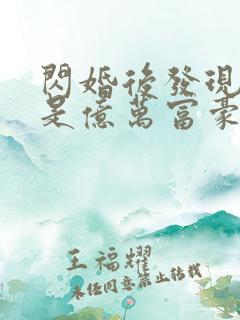 閃婚後發現
是億萬富豪
王福耀
未任同意禁止轉載